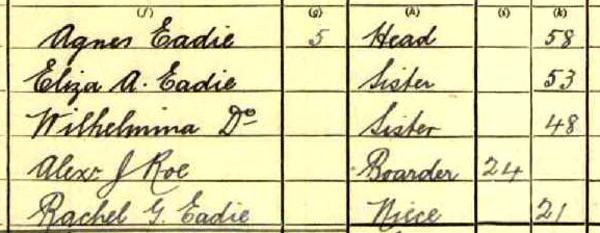 (f) (g) (h) (i) (k)
Agnes Eadie 5 Head 58
Eliza A. Eadie Sister 53
Wilhelmina Do Sister 48
Alexr J Roe Boarder 24
Rachel G. Eadie Niece 21